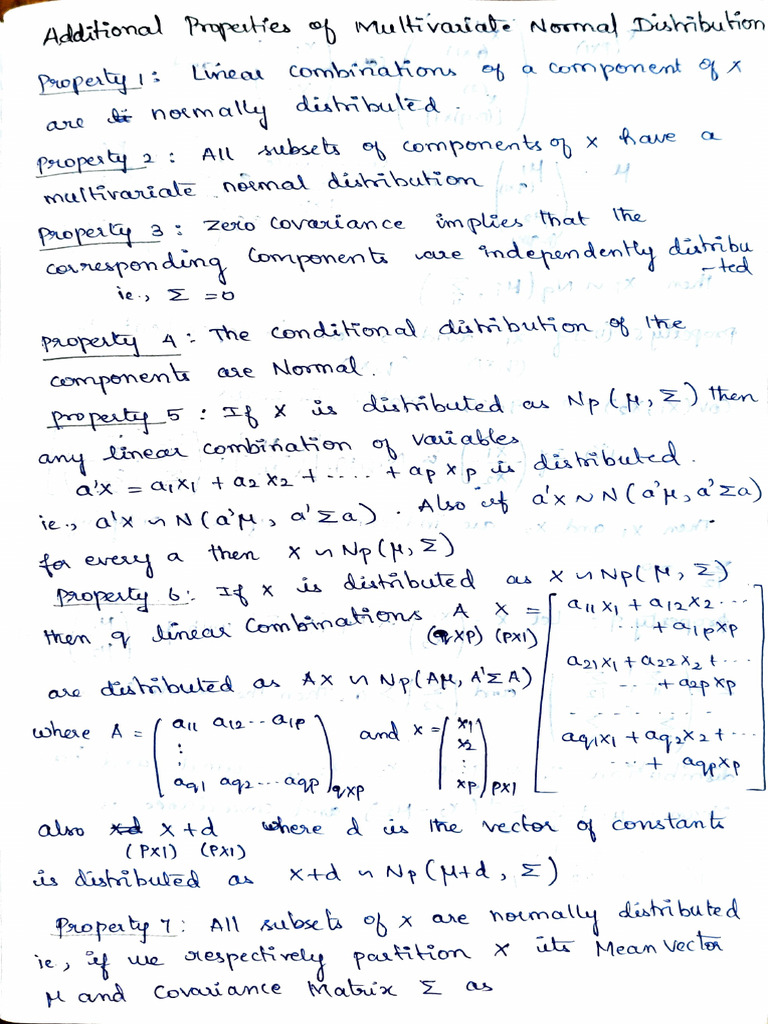 Additional Properties of Multivariate Normal Distribution
Property 1: Linear combinations of a component of x
are normally distributed.
Property 2: All subsets of components of x have a
multivariate normal distribution
Property 3: Zero covariance implies that the
corresponding components are independently distribu
-ted
ie., Σ = 0
Property 4: The conditional distribution of the
components are Normal.
Property 5: If x is distributed as Np(μ, Σ) then
any linear combination of variables
a'x = a1x1 + a2x2 + ..... + apxp is distributed.
ie., a'x ~ N(a'μ, a'Σa). Also if a'x ~ N(a'μ, a'Σa)
for every a then x ~ Np(μ, Σ)
Property 6: If x is distributed as x ~ Np(μ, Σ)
then q linear combinations A X = [ a11x1 + a12x2 ...
(qxp) (px1) ... + a1pxp
a21x1 + a22x2 + ...
are distributed as Ax ~ Np(Aμ, A'ΣA) ... + a2pxp
.........
where A = ( a11 a12 .. a1p ⋮ aq1 aq2 ... aqp )qxp and x = ( x1 x2 ⋮ xp )px1 aq1x1 + aq2x2 + ...
... + aqpxp ]
also x+d where d is the vector of constants
(px1) (px1)
is distributed as x+d ~ Np(μ+d, Σ)
Property 7: All subsets of x are normally distributed
ie, if we respectively partition x its Mean vector
μ and Covariance Matrix Σ as